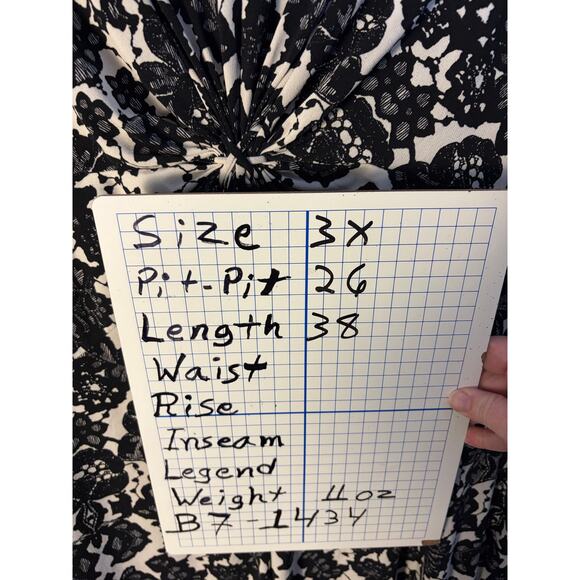 Size 3X
Pit-Pit 26
Length 38
Waist
Rise
Inseam
Legend
Weight 11oz
B7-1434